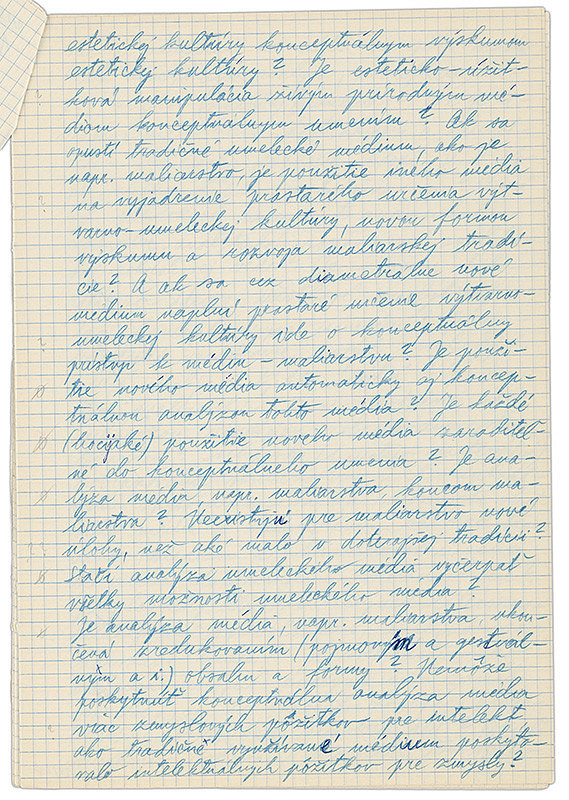 estetickej kultúry konceptuálnym výskumom
estetickej kultúry? Je esteticko-úžit-
ková manipulácia živým prírodným mé-
diom konceptuálnym umením? Ak sa
opustí tradičné umelecké médium, ako je
napr. maliarstvo, je použitie iného média
na vyjadrenie prastarého určenia výt-
varno-umeleckej kultúry, novou formou
výskumu a rozvoja maliarskej tradí-
cie? A ak sa cez diametrálne nové
médium naplní prastaré určenie výtvarno-
umeleckej kultúry ide o konceptuálny
prístup k médiu - maliarstvu? Je použi-
tie nového média automaticky aj koncep-
tuálnou analýzou tohto média? Je každé
(hocijaké) použitie nového média zarobiteľ-
né do konceptuálneho umenia? Je ana-
lýza média, napr. maliarstva, koncom ma-
liarstva? Neexistujú pre maliarstvo nové
úlohy, než aké malo v doterajšej tradícii?
Stačí analýza umeleckého média vyčerpať
všetky možnosti umeleckého média?
Je analýza média, napr. maliarstva, ukon-
čená zredukovaním (pojmovým a gestuál-
nym a i.) obsahu a formy? Nemôže
poskytnúť konceptuálna analýza média
viac zmyslových pôžitkov pre intelekt,
ako tradičné využívané médium poskyto-
valo intelektuálnych pôžitkov pre zmysly?